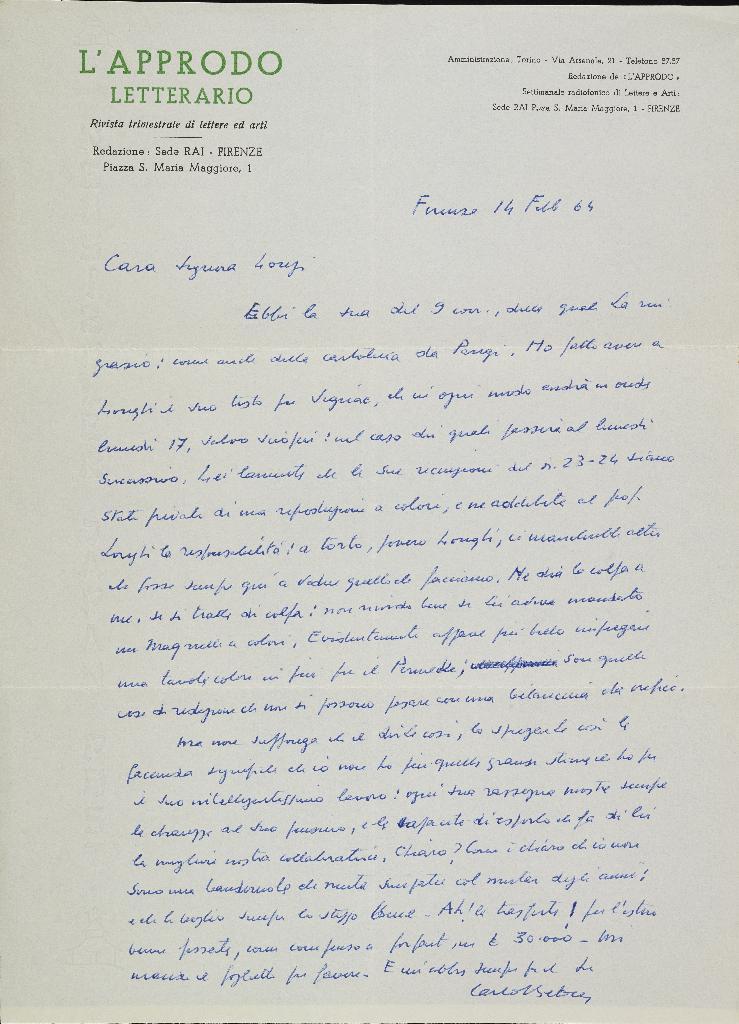 L'APPRODO
LETTERARIO
Rivista trimestrale di lettere ed arti
Redazione: Sede RAI - FIRENZE
Piazza S. Maria Maggiore, 1
Amministrazione, Torino - Via Arsenale, 21 - Telefono 57.57
Redazione de «L'APPRODO»
Settimanale radiofonico di Lettere e Arti:
Sede RAI P.zza S. Maria Maggiore, 1 - FIRENZE
Firenze 14 Febb 64
Cara Signora
Ebbi la sua del 9 corr., della quale La rin
grazio: come anche della cartolina da Parigi. Ho fatto avere a
Longhi il suo testo per Signac, che in ogni modo andrà in onda
lunedì 17, salvo: nel caso dei quali passerà al lunedì
successivo. Lei lamenta che le Sue recensioni del n. 23-24 siano
state private di una riproduzione a colori, e ne addebita al prof.
Longhi la responsabilità: a torto, povero Longhi, ci mancherebbe altro
che fosse sempre qui a vedere quello che facciamo. Me dia la colpa a
me, se si tratta di colpa: non ricordo bene se Lei aveva mandato
un Magnelli a colori. Evidentemente apparve più bello impiegare
una tavola colori in più per il; son quelle
cose di redazione che non si possono pesare con una bilancina da orefice.
Ma non supponga che il dirle così, lo spiegarle così la
faccenda significhi che io non ho più quella grande stima che ho per
il Suo intelligentissimo lavoro: ogni sua rassegna mostra sempre
la chiarezza del Suo pensiero, e la capacità di esporlo che fa di Lei
la migliore nostra collaboratrice. Chiaro? Come è chiaro che io non
sono una banderuola che muta simpatie col mutar degli anni:
e che le voglio sempre lo stesso bene. - Ah! la trasferta! per l'estero
viene pagata, come compenso a forfait, in £ 30.000 - Mi
mandi il foglietto per favore. E mi abbia sempre per il Su
Carlo Betocchi